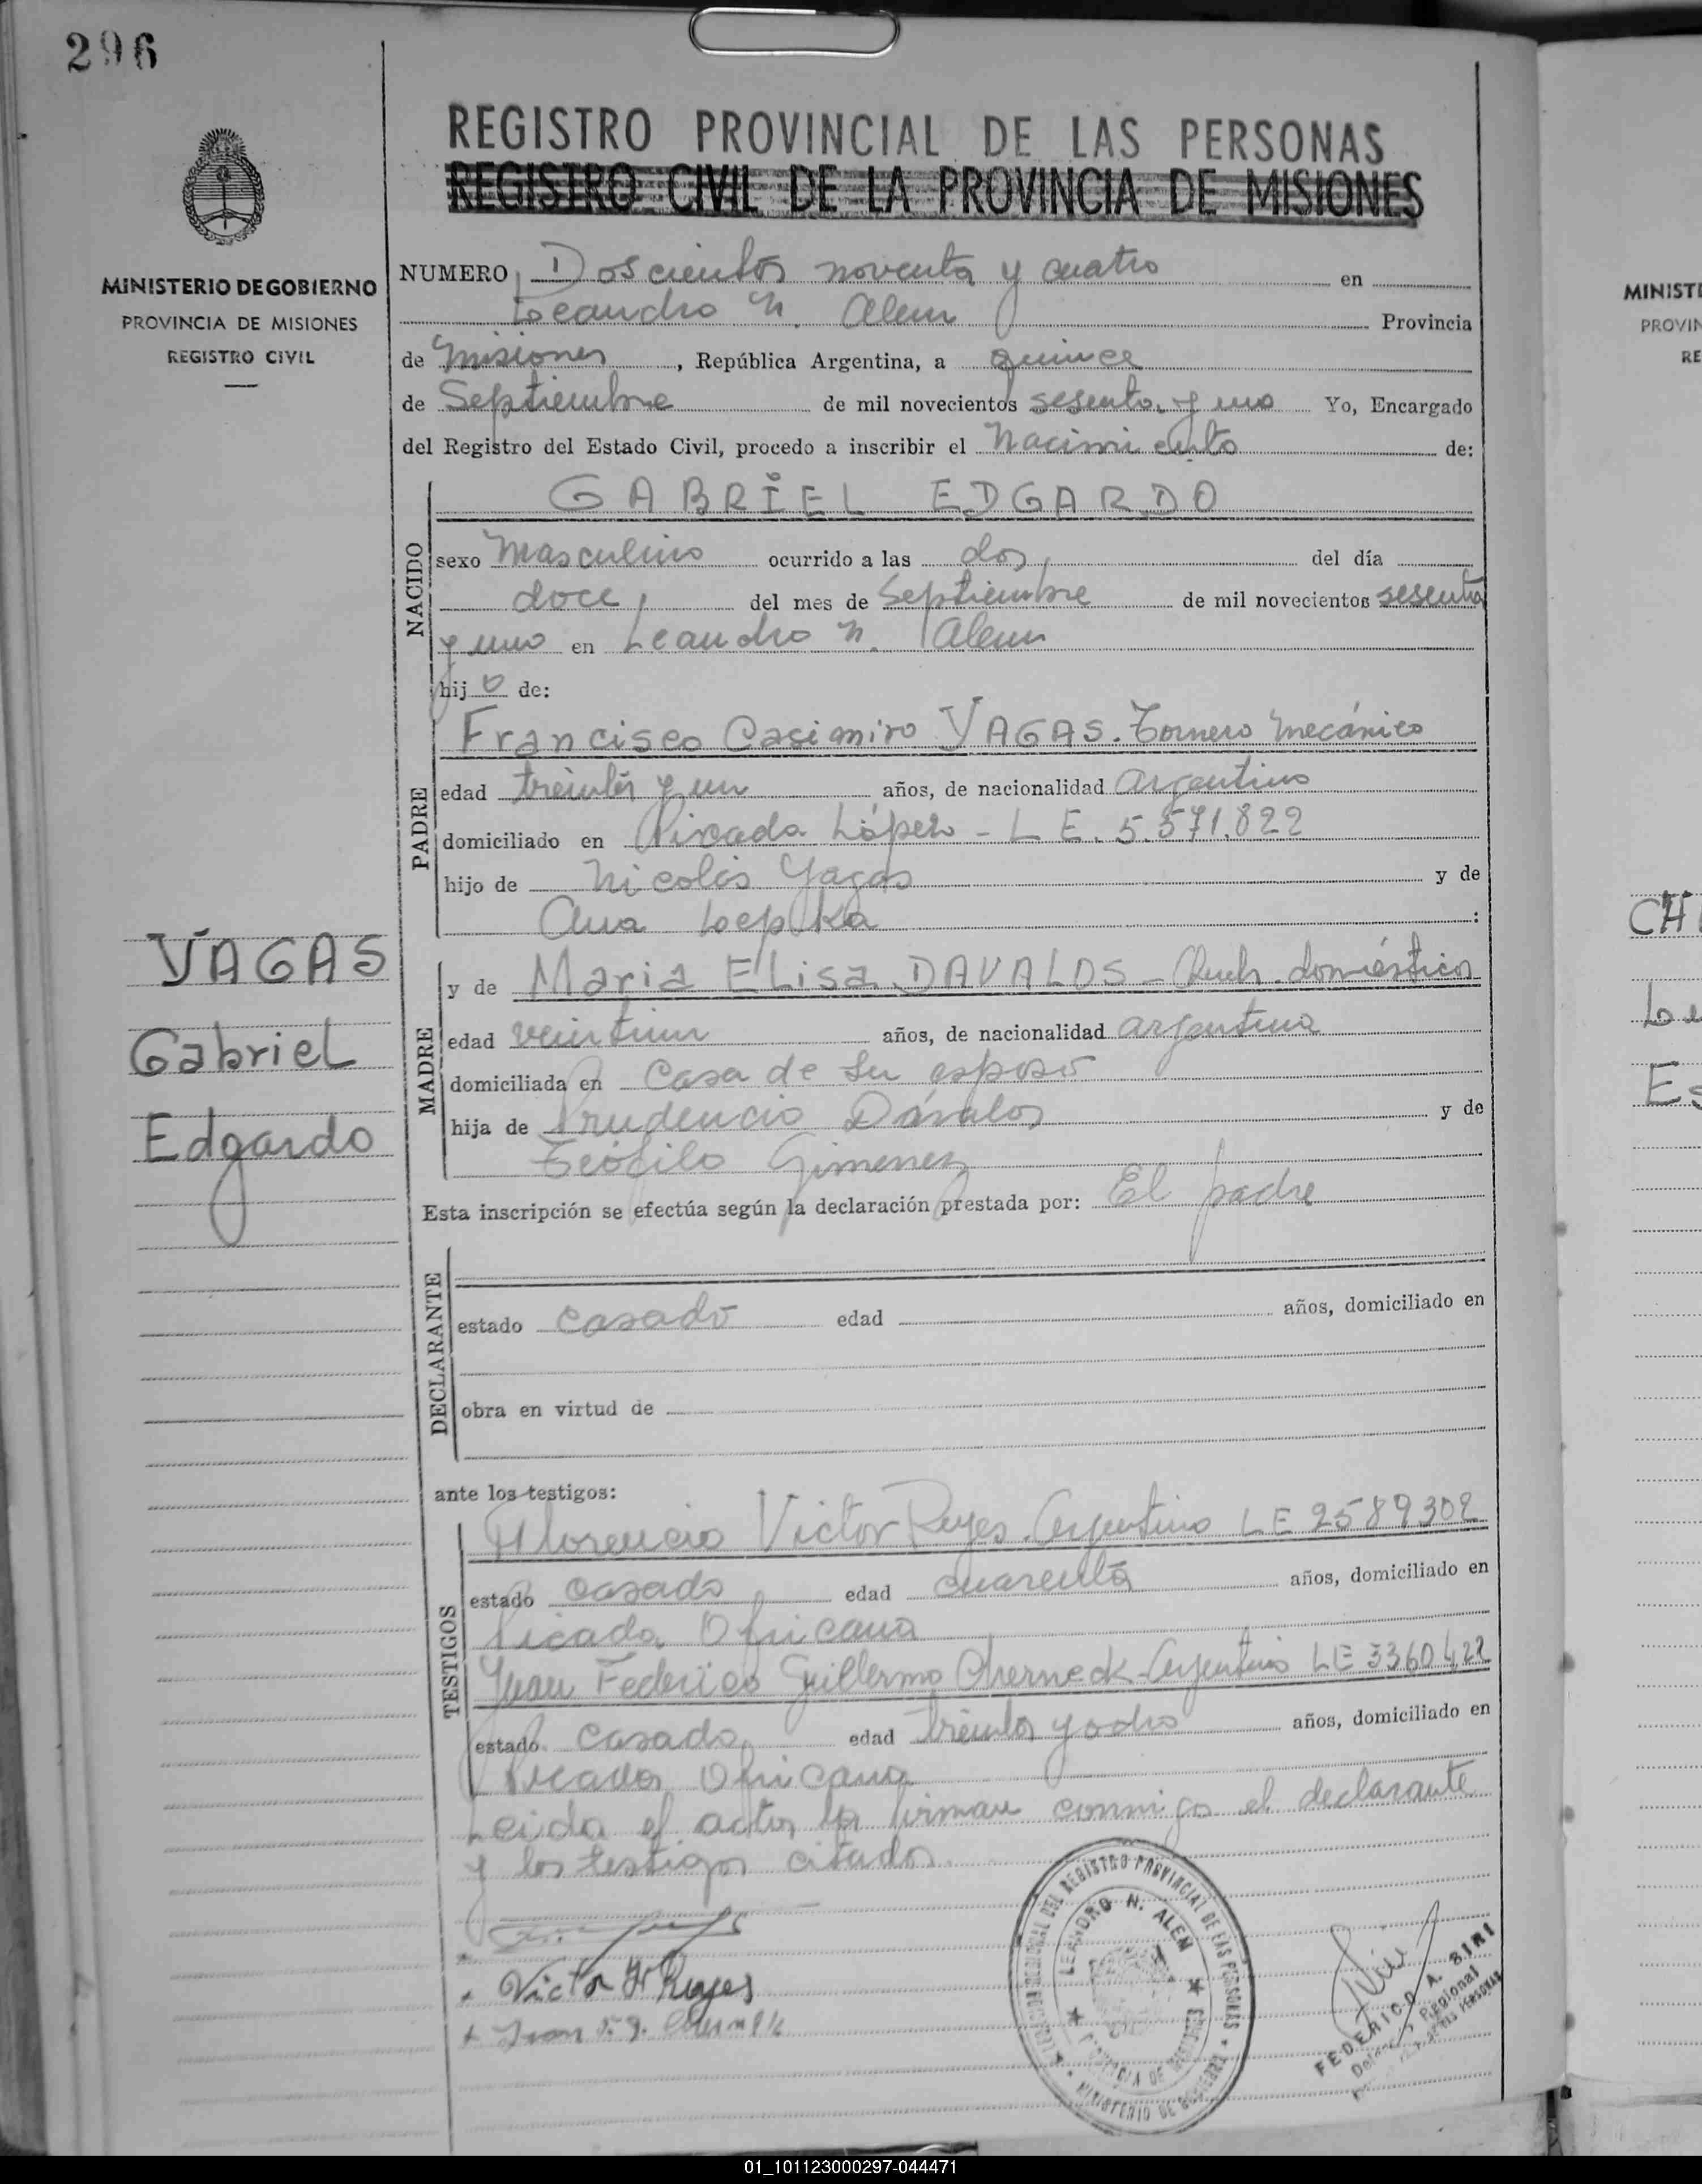 296
REGISTRO PROVINCIAL DE LAS PERSONAS
REGISTRO CIVIL DE LA PROVINCIA DE MISIONES
MINISTERIO DE GOBIERNO
PROVINCIA DE MISIONES
REGISTRO CIVIL
NUMERO Doscientos noventa y cuatro en
Leandro N. Alem Provincia
de Misiones, República Argentina, a quince
de Septiembre de mil novecientos sesenta y uno Yo, Encargado
del Registro del Estado Civil, procedo a inscribir el Nacimiento de:
NACIDO
GABRIEL EDGARDO
sexo Masculino ocurrido a las dos, del día
doce, del mes de Septiembre de mil novecientos sesenta
y uno en Leandro N. Alem
hijo de:
PADRE
Francisco Casimiro YAGAS. Tornero Mecánico
edad treinta y un años, de nacionalidad Argentino
domiciliado en Picada López - L E. 5.571.822
hijo de Nicolás Yagas y de
Ana :
YAGAS
Gabriel
Edgardo
MADRE
y de Maria ELisa DAVALOS - Queh. domésticos
edad veintiun años, de nacionalidad argentina
domiciliada en Casa de su esposo
hija de Prudencio Dávalos y de
Teófila Gimenez
Esta inscripción se efectúa según la declaración prestada por: El padre
DECLARANTE
estado casado edad años, domiciliado en
obra en virtud de
ante los testigos:
TESTIGOS
Florencio Victor Reyes. Argentino LE 2589302
estado casado edad cuarenta años, domiciliado en
Picada
Juan Federico Guillermo Cherneck - Argentino LE 3360422
estado casado, edad treinta y ocho años, domiciliado en
Picada
Leida el acta, la firman conmigo el declarante
y los testigos citados.
Victor F Reyes
Juan F. G.
LEANDRO N. ALEM
REGISTRO PROVINCIAL DE LAS PERSONAS
MINISTERIO DE GOBIERNO
FEDERICO A. SIRI
MINISTE
PROVIN
RE
CH
Le
Es
01_101123000297-044471